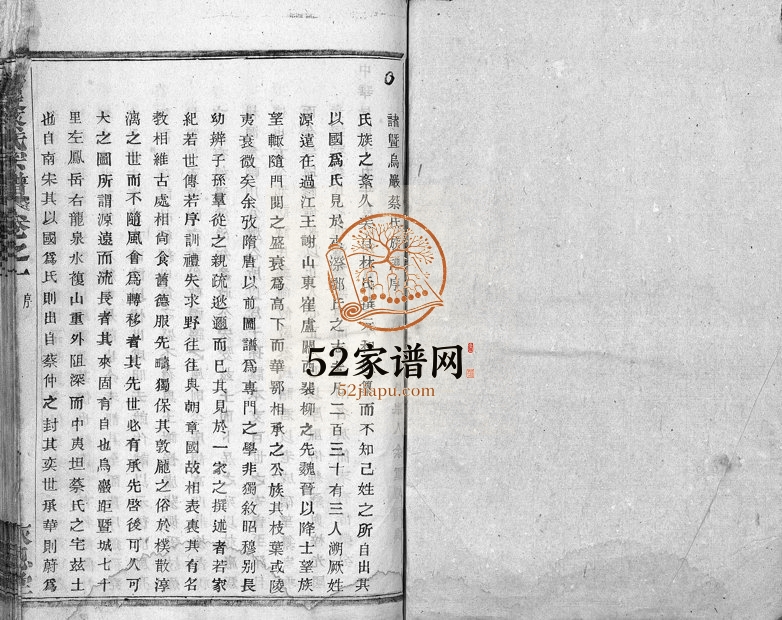 諸暨烏巖蔡氏序
氏族之紊久矣林氏撰而不知己姓之所自出其
以國爲氏見於二百三十有三人溯厥姓
源遠在過江王謝山東崔盧關西裴柳之先魏晉以降士望族
望輙隨門閥之盛衰爲高下而華鄂相承之公族其枝葉或陵
夷衰微矣余攷隋唐以前圖譜爲專門之學非獨敘昭穆别長
幼辨子孫羣從之親疏遜邇而已其見於一家之撰述者若家
紀若世傳若序訓禮失求野往往與朝章國故相表裏其有名
教相維古處相尙食舊德服先疇獨保其敦龐之俗於樸散淳
漓之世而不隨風會爲轉移者其先世必有承先啓後可久可
大之圖所謂源遠而流長者其來固有自也烏巖距暨城七十
里左鳳岳右龍泉水複山重外阻深而中夷坦蔡氏之宅兹土
也自南宋其以國爲氏則出自蔡仲之封其奕世承華則蔚爲
氏宗譜卷之一
序
52家谱网
52jiapu.com